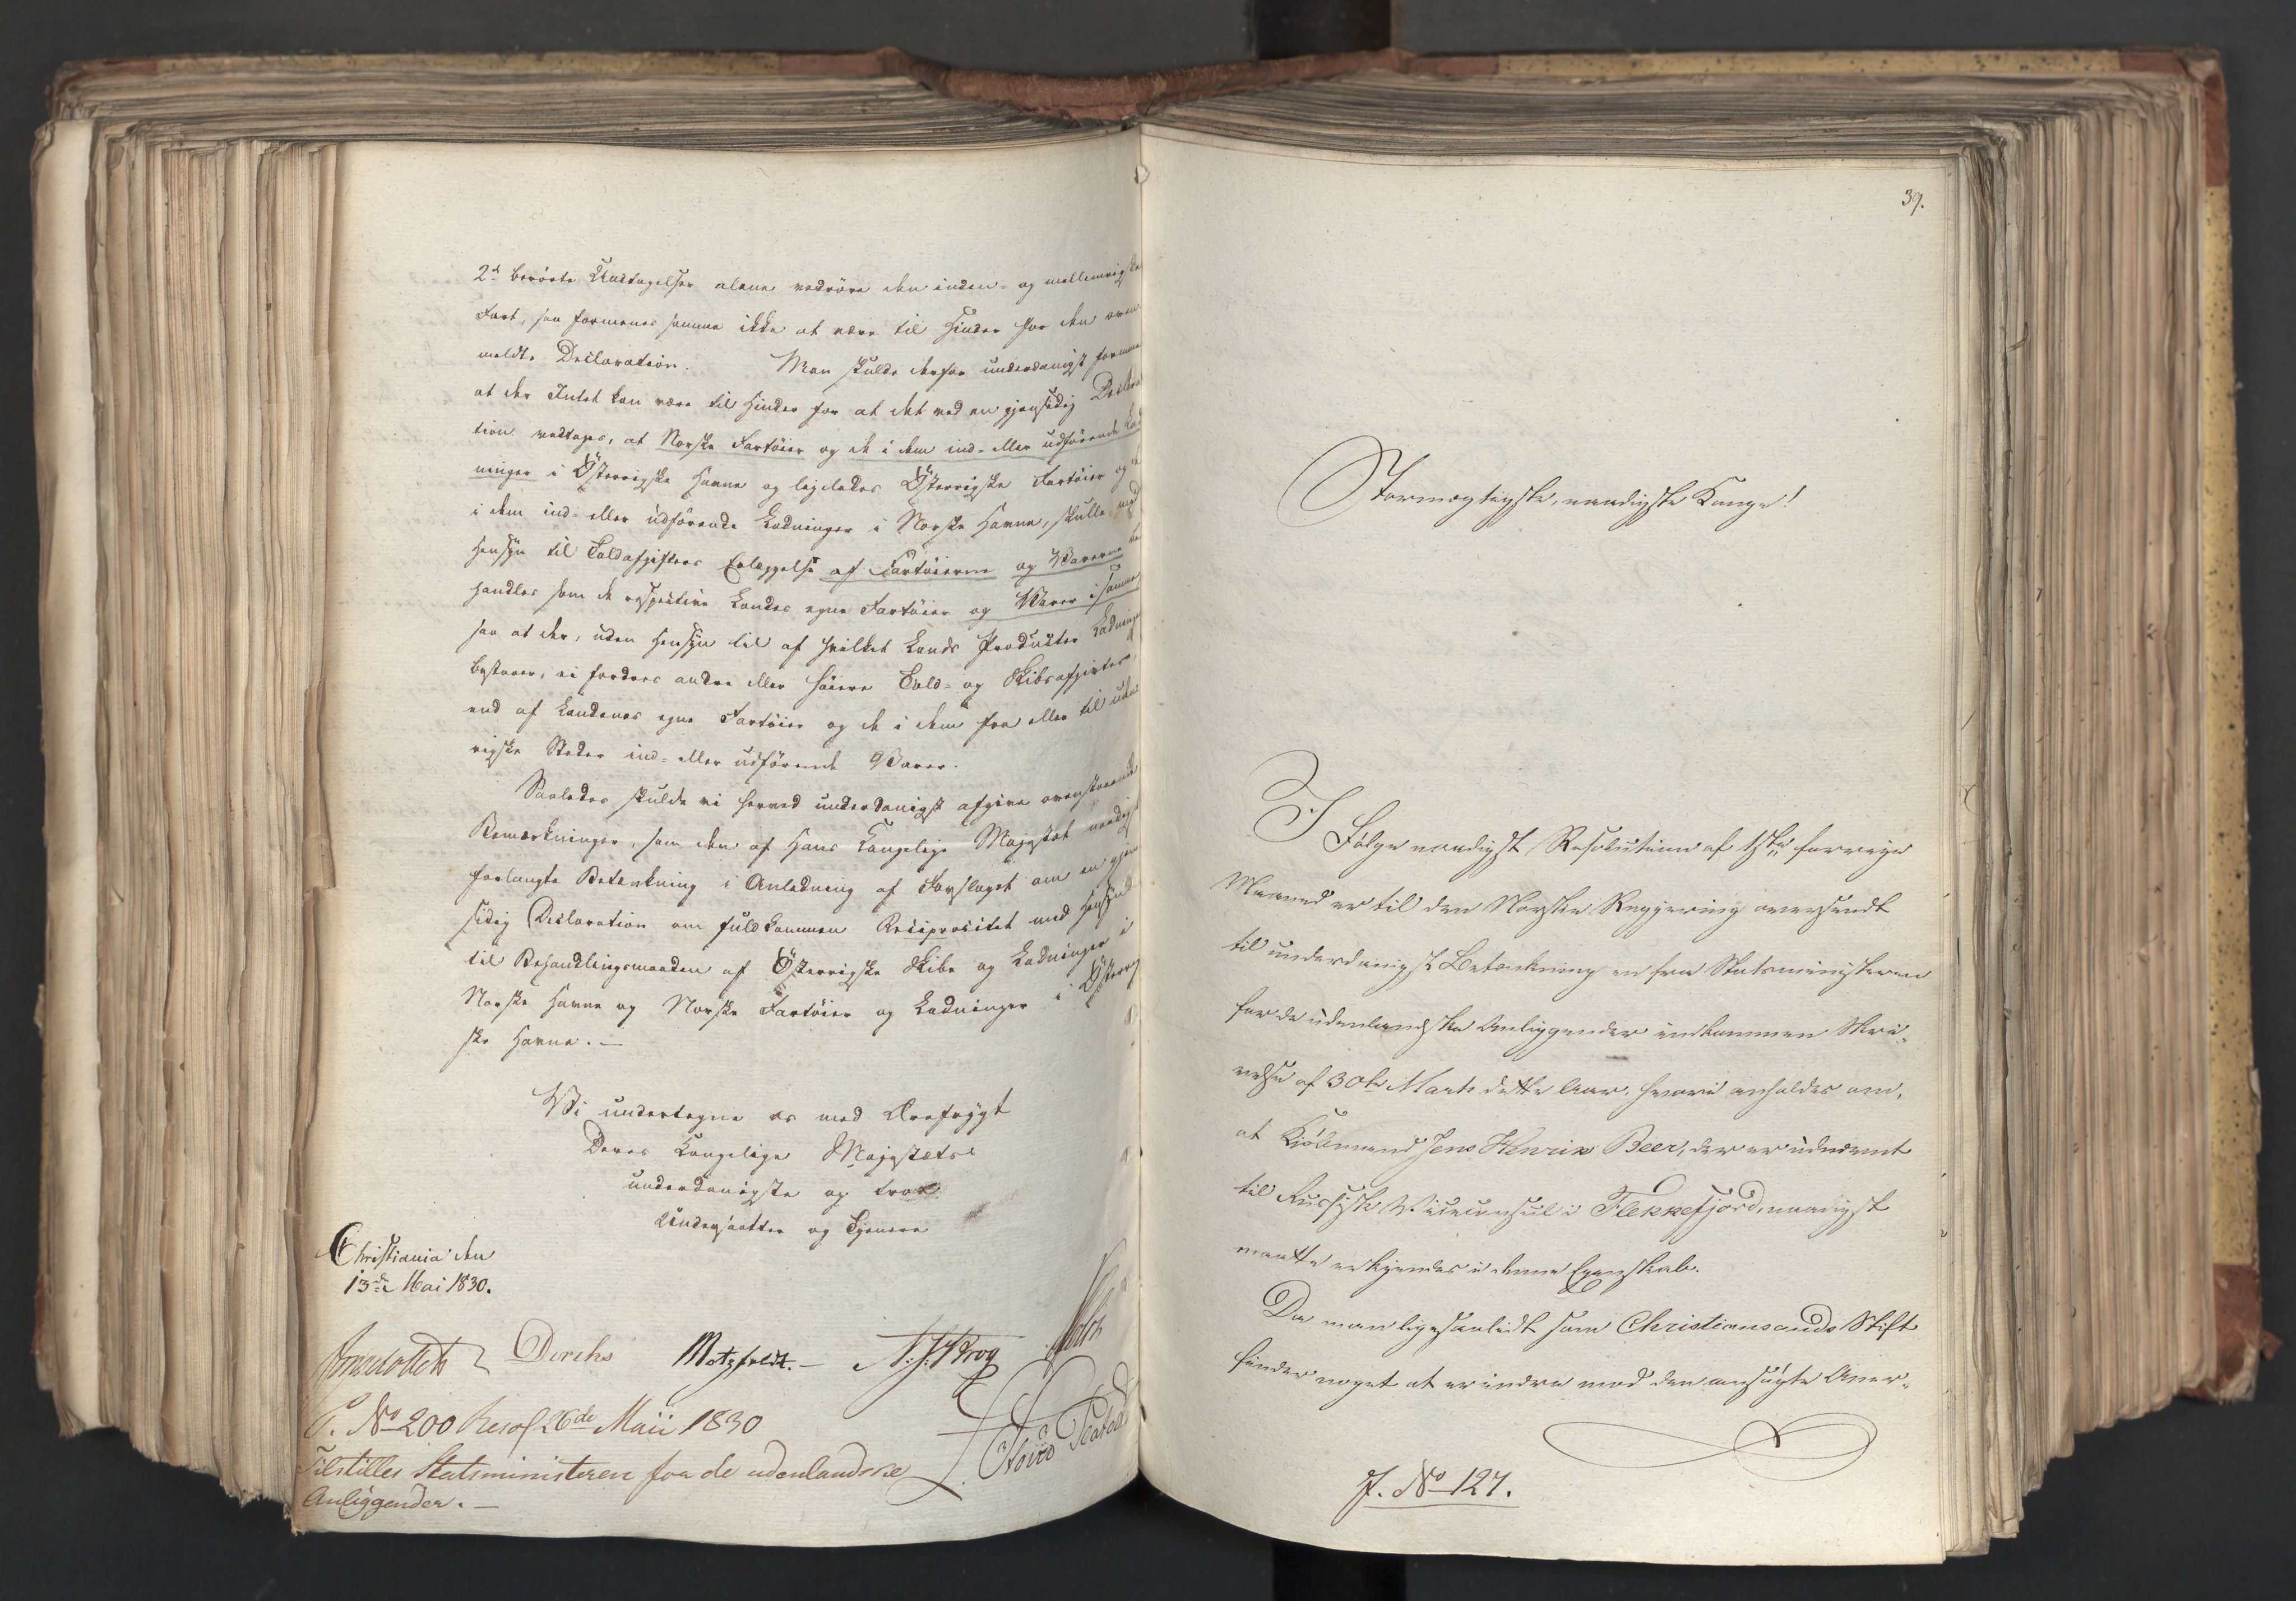 2d berörte Undtagelser alene vedröre den inden- og mellemrigske
Fart, saa formenes samme ikke at være til Hinder for den oven
meldte Declaration. Man skulde derfor underdanigst formene
at der Intet kan være til Hinder for at det ved en gjensidig Declara
tion vedtages, at Norske Fartöier og de i dem ind- eller udförende Lad
ninger i Österrigske Havne og ligeledes Österrigske Fartöier og de
i dem ind- eller udförende Ladninger i Norske Havne, skulle med
Hensyn til Toldafgifters Erlæggelse af Fartöierne og Varerne be
handles som de respective Landes egne Fartöier og Varer i samme
saa at der, uden Hensyn til af hvilket Lands Produkter Ladningen
bestaaer, ei fordres andre eller höiere Told- og Skibsafgivter,
end af Landenes egne Fartöier og de i dem fra eller til uden
rigske Steder ind- eller udförende Varer.
Saaledes skulde vi herved underdanigst afgive ovenstaaende
Bemærkninger, som den af Hans Kongelige Majestæt naadigst
forlangte Betænkning i Anledning af Forslaget om en gjen
sidig Declaration om fuldkommen Reciprocitet med Hensyn
til Behandlingsmaaden af Österrigske Skibe og Ladninger i
Norske Havne og Norske Fartöier og Ladninger i Österrig
ske Havne. —
Vi undertegne os med Ærefrygt
Deres Kongelige Majestæts
underdanigste og troe
Undersaatter og Tjenere
Christiania den
13de Mai 1830.
Diriks Motzfeldt. — N. J. Krog Holst
P. No 200 Resol 26de Maii 1830
Tilstilles Statsministeren for de udenlandske
Anliggender. —
39.
Stormægtigste, naadigste Konge!
I Fölge naadigst Resolution af 1ste forrige
Maaned er til den Norske Regjering oversendt
til underdanigst Betænkning en fra Statsministeren
for de udenlandske Anliggender indkommen Skri-
velse af 30te Marts dette Aar, hvori anholdes om,
at Kjöbmand Jens Henrik Beer, der er udnævnt
til Russisk Viceconsul i Flekkefjord, naadigst
maatte erkjendes i denne Egenskab.
Da man ligesaalidt som Christiansands Stift
finder noget at erindre mod den ansögte Aner-
J. No 127.